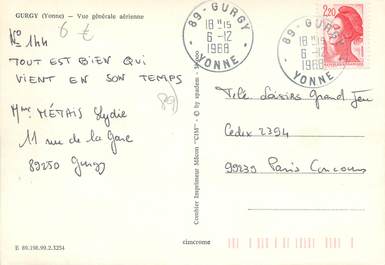 GURGY (Yonne) — Vue générale aérienne
6 €
No 144
TOUT EST BIEN QUI
VIENT EN SON TEMPS
89)
Mme MÉTAIS Lydie
11 rue de la Gare
89250 Gurgy
E 89.198.99.2.3254
Combier Imprimeur Mâcon "CIM" - © by spadem
cimcrome
89 - GURGY
18H15
6-12
1988
YONNE
89 - GURGY
18H15
6-12
1988
YONNE
2,20
Télé Loisirs Grand Jeu
Cedex 2394
99239 Paris Concours